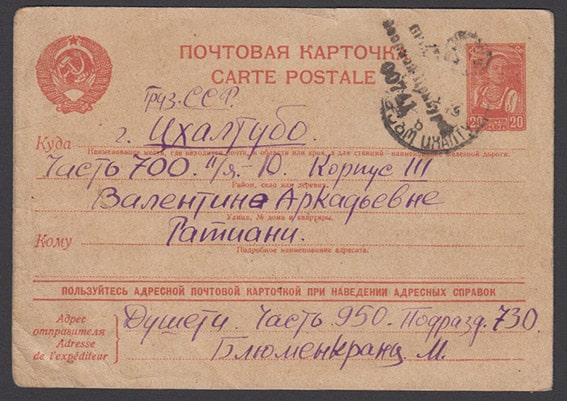 ПОЧТОВАЯ КАРТОЧКА
CARTE POSTALE
Груз. ССР.
Куда г. Цхалтубо.
Наименование места, где находится почта, и области или края, а для станций - наименование железной дороги.
Часть 700. п/я-10. Корпус III
Район, село или деревня.
Валентине Аркадьевне
Улица, № дома и квартиры.
Кому Ратиани.
Подробное наименование адресата.
20 20
ПОЛЬЗУЙТЕСЬ АДРЕСНОЙ ПОЧТОВОЙ КАРТОЧКОЙ ПРИ НАВЕДЕНИИ АДРЕСНЫХ СПРАВОК
Адрес отправителя
Adresse de l'expéditeur
Душети. Часть 950. Подразд. 730.
Блюменкранц М.